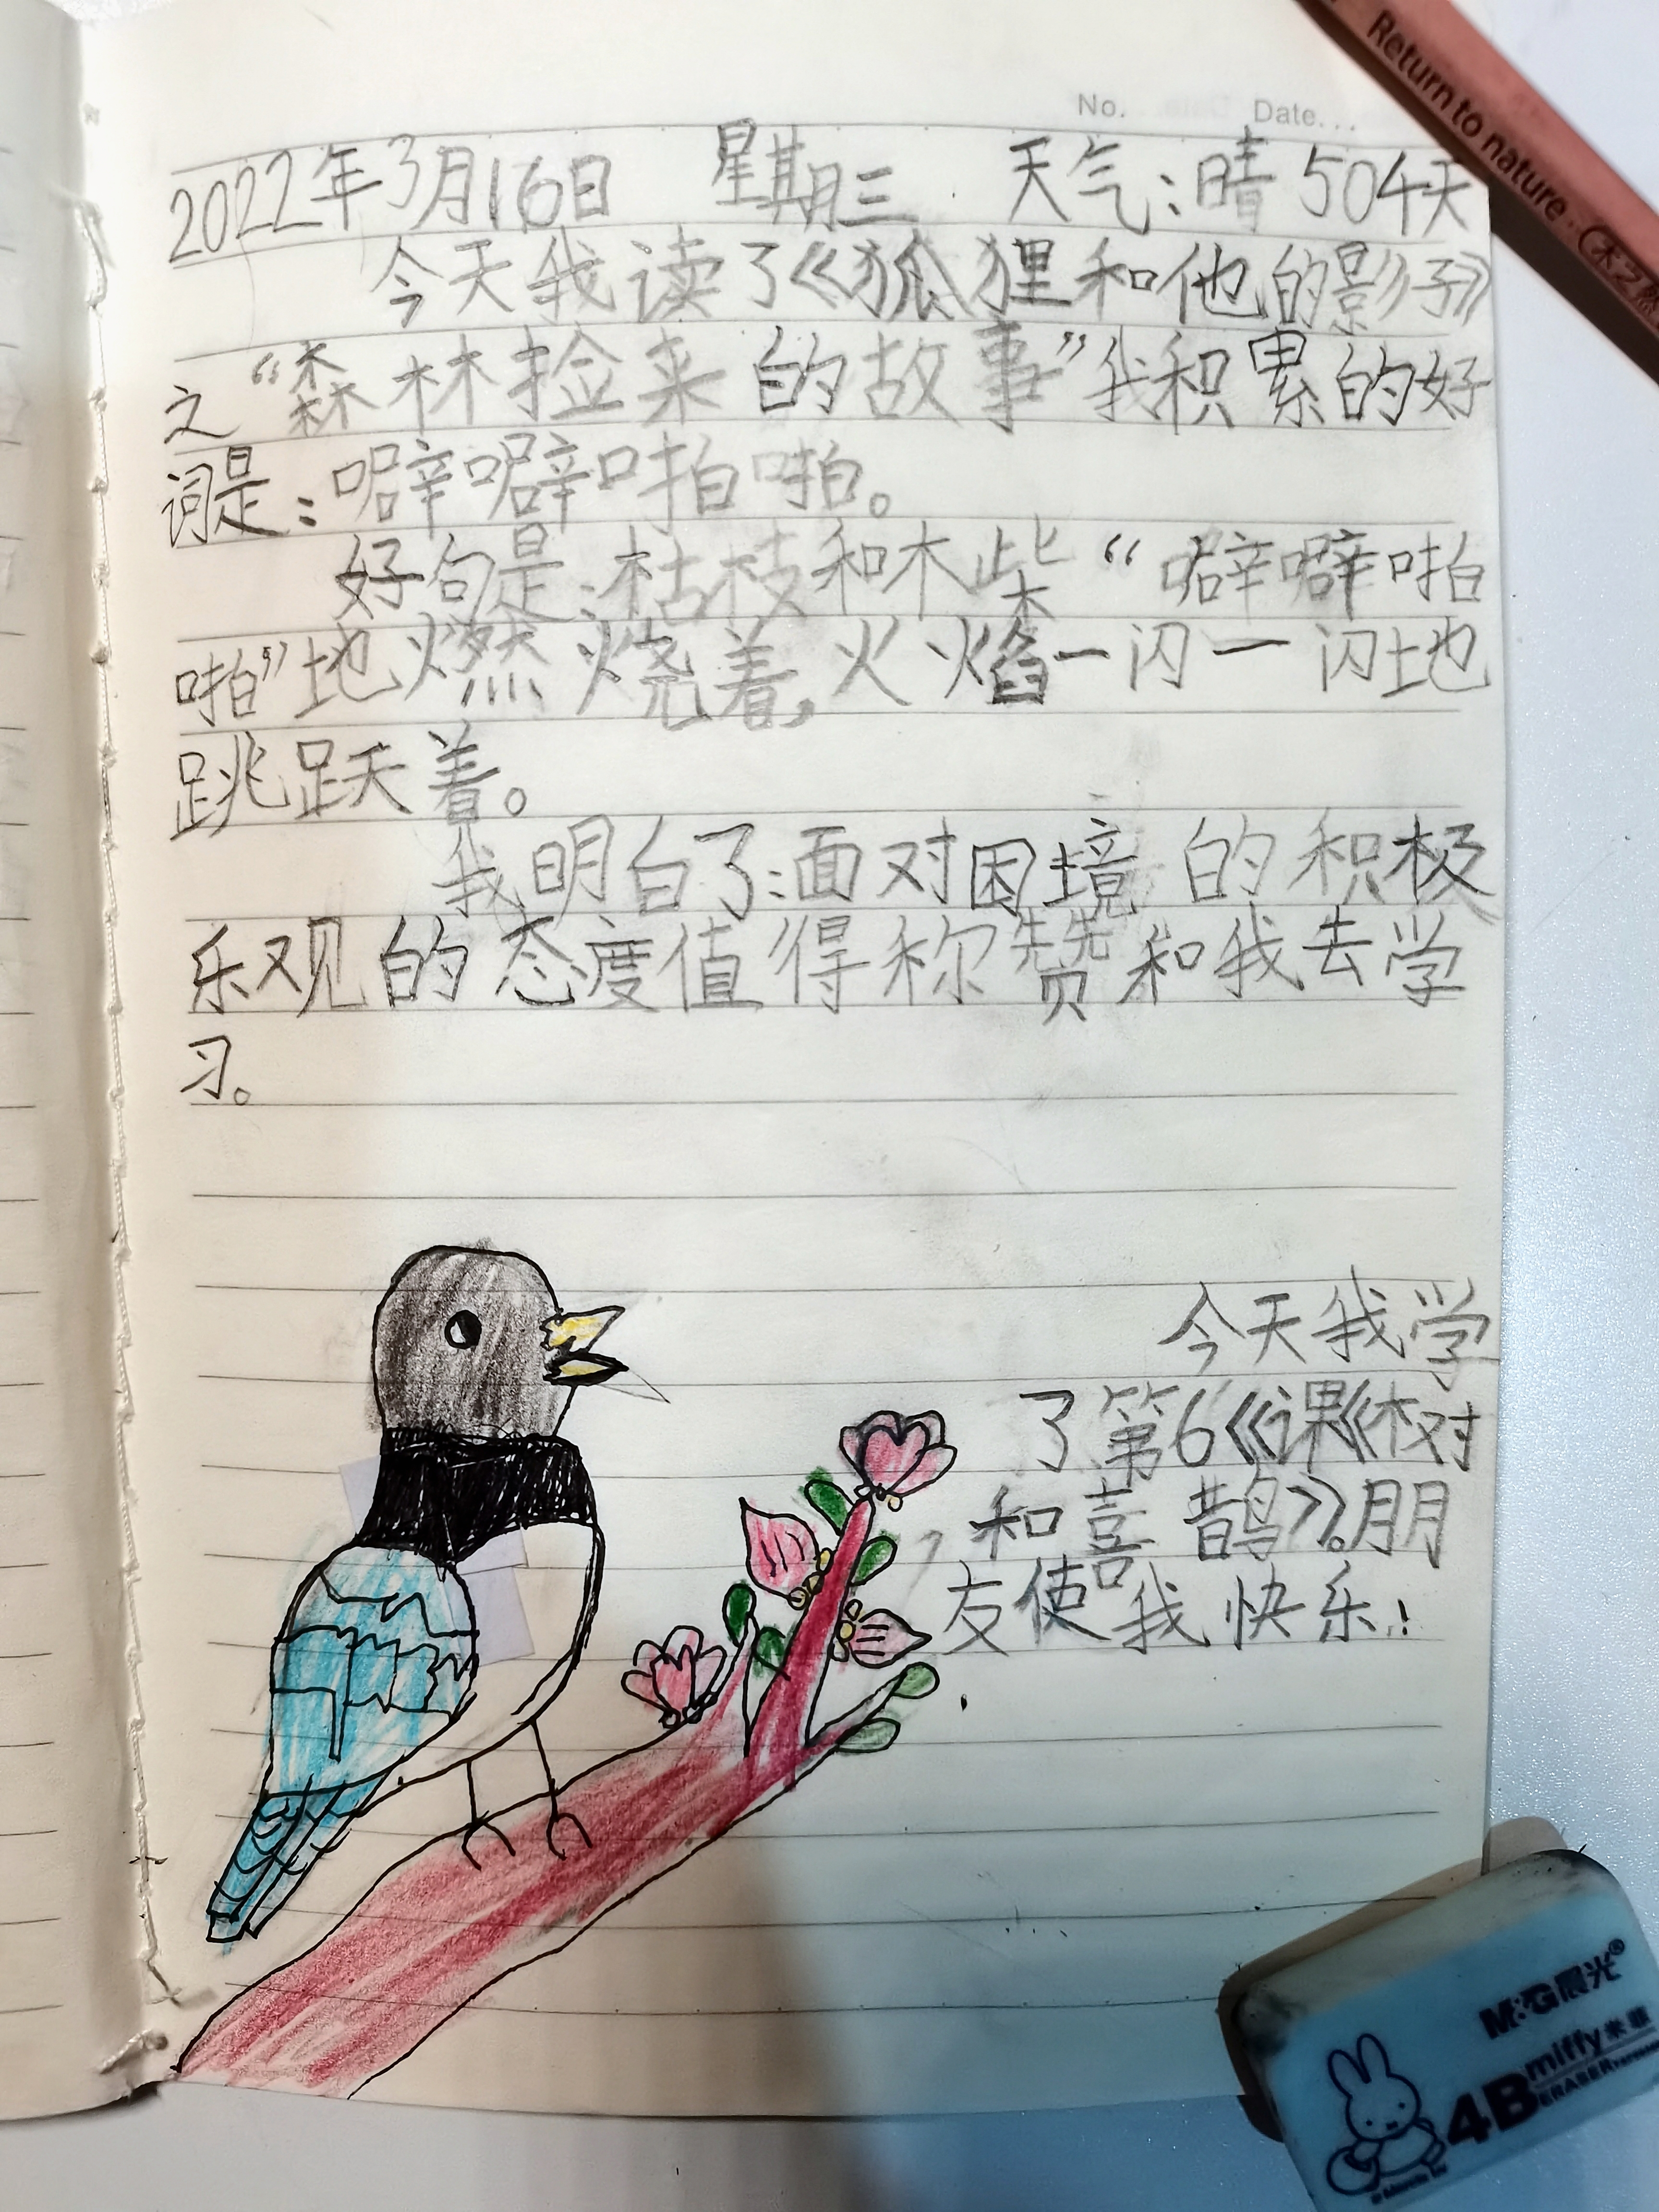 No. Date...
Return to nature...
2022年3月16日 星期三 天气:晴 504天
今天我读了《狐狸和他的影子》
之“森林捡来的故事”我积累的好
词是:噼噼啪啪。
好句是:枯枝和木柴“噼噼啪
啪”地燃烧着,火焰一闪一闪地
跳跃着。
我明白了:面对困境的积极
乐观的态度值得称赞和我去学
习。
今天我学
了第6《课《树
和喜鹊》。朋
友使我快乐!
M&G晨光®
miffy米菲
4B ERASER